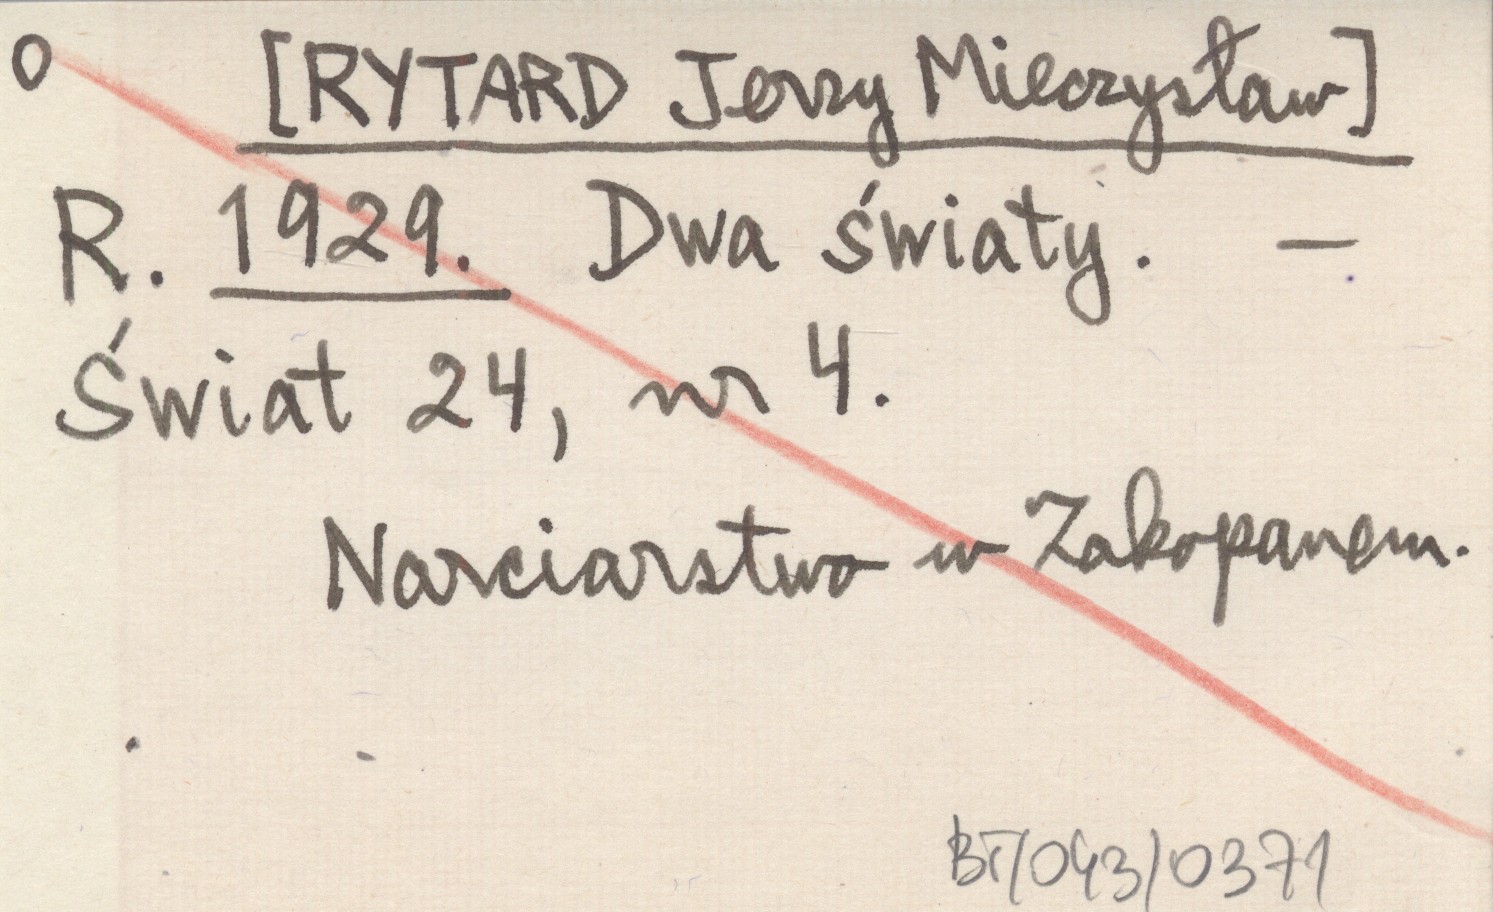 O [RYTARD Jerzy Mieczysław]
R. 1929. Dwa światy. —
Świat 24, nr 4.
Narciarstwo w Zakopanem.
BT/043/0371